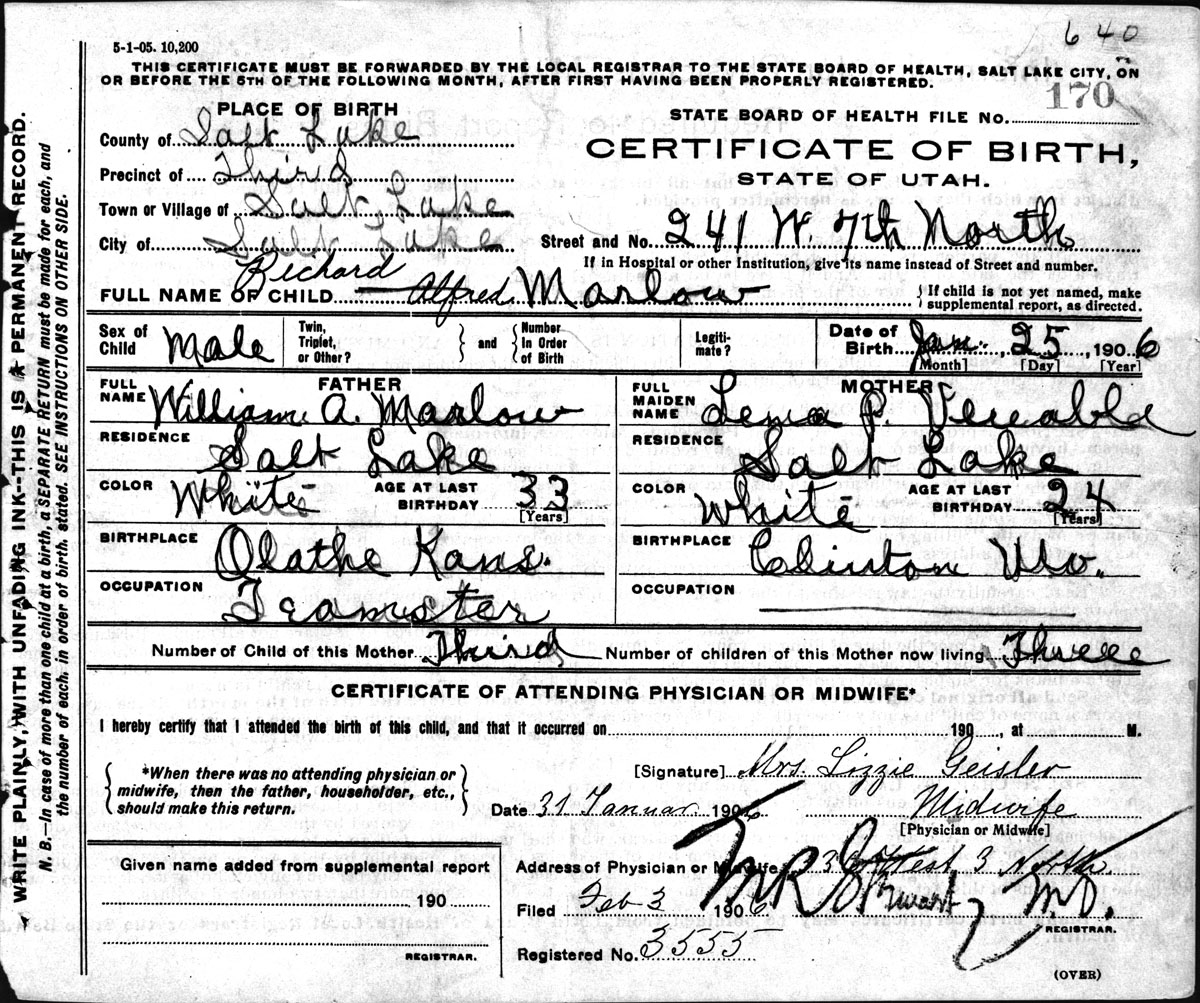 640
5-1-05. 10,200
THIS CERTIFICATE MUST BE FORWARDED BY THE LOCAL REGISTRAR TO THE STATE BOARD OF HEALTH, SALT LAKE CITY, ON
OR BEFORE THE 5TH OF THE FOLLOWING MONTH, AFTER FIRST HAVING BEEN PROPERLY REGISTERED.
170
PLACE OF BIRTH
STATE BOARD OF HEALTH FILE No.
County of Salt Lake
CERTIFICATE OF BIRTH,
Precinct of Third
STATE OF UTAH.
Town or Village of Salt Lake
City of Salt Lake
Street and No. 241 W. 7th North
If in Hospital or other Institution, give its name instead of Street and number.
Richard
FULL NAME OF CHILD Alfred Marlow
{If child is not yet named, make
supplemental report, as directed.
Sex of Child Male
Twin, Triplet, or Other? } and { Number In Order of Birth
Legitimate?
Date of Birth Jan. 25, 1906
[Month] [Day] [Year]
FATHER
FULL NAME William A. Marlow
RESIDENCE Salt Lake
COLOR White
AGE AT LAST BIRTHDAY 33
[Years]
BIRTHPLACE Olathe Kans.
OCCUPATION Teamster
MOTHER
FULL MAIDEN NAME Lena P.
RESIDENCE Salt Lake
COLOR White
AGE AT LAST BIRTHDAY 24
[Years]
BIRTHPLACE Clinton
OCCUPATION
Number of Child of this Mother Third
Number of children of this Mother now living Three
CERTIFICATE OF ATTENDING PHYSICIAN OR MIDWIFE*
I hereby certify that I attended the birth of this child, and that it occurred on 190 , at M.
{*When there was no attending physician or
midwife, then the father, householder, etc.,
should make this return.}
[Signature] Mrs. Lizzie Geisler
Date 31 Januar. 1906
Midwife
[Physician or Midwife]
Given name added from supplemental report
190
REGISTRAR.
Address of Physician or Midwife 3 North.
Filed Feb 3 1906
M.D.
REGISTRAR.
Registered No. 3555
(OVER)
WRITE PLAINLY, WITH UNFADING INK--THIS IS A PERMANENT RECORD.
N. B.—In case of more than one child at a birth, a SEPARATE RETURN must be made for each, and
the number of each. in order of birth. stated. SEE INSTRUCTIONS ON OTHER SIDE.